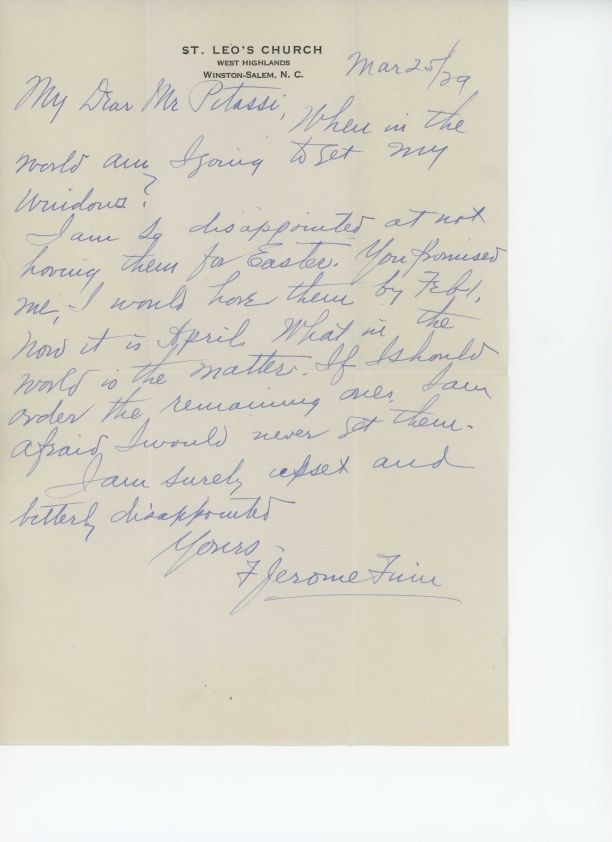 ST. LEO'S CHURCH
WEST HIGHLANDS
WINSTON-SALEM, N. C.
Mar 25/29
My Dear Mr Pitassi,
When in the
world am I going to get my
windows?
I am so disappointed at not
having them for Easter. You promised
me, I would have them by Feb 1,
now it is April What in the
world is the matter. If I should
order the remaining ones, I am
afraid I would never get them.
I am surely upset and
bitterly disappointed
Yours -
F Jerome Finn